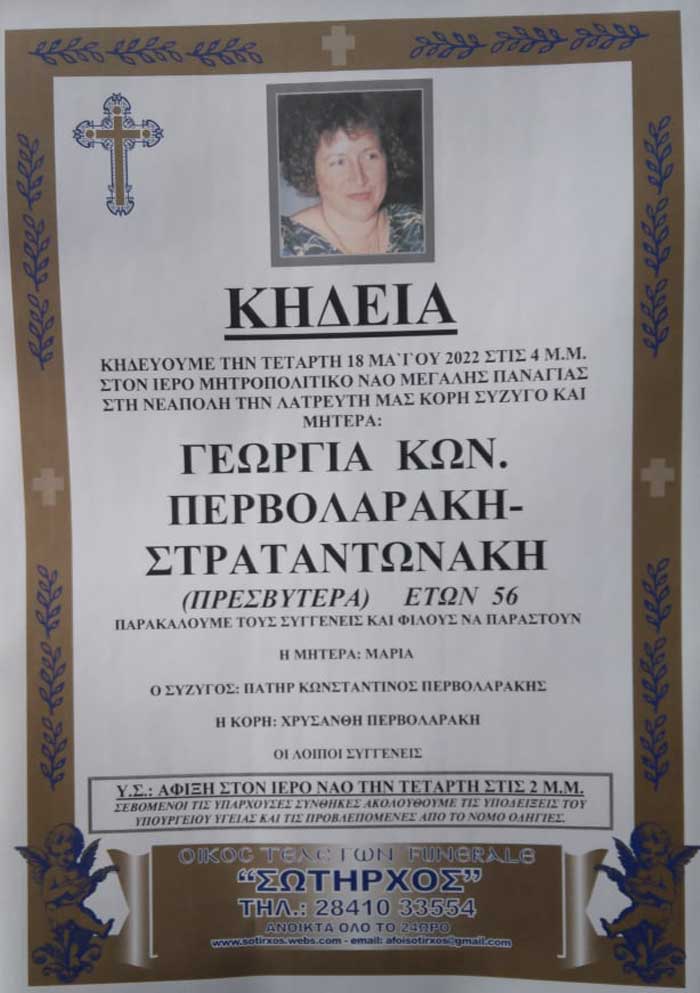 ΚΗΔΕΙΑ
ΚΗΔΕΥΟΥΜΕ ΤΗΝ ΤΕΤΑΡΤΗ 18 ΜΑ`Γ΄ΟΥ 2022 ΣΤΙΣ 4 Μ.Μ.
ΣΤΟΝ ΙΕΡΟ ΜΗΤΡΟΠΟΛΙΤΙΚΟ ΝΑΟ ΜΕΓΑΛΗΣ ΠΑΝΑΓΙΑΣ
ΣΤΗ ΝΕΑΠΟΛΗ ΤΗΝ ΛΑΤΡΕΥΤΗ ΜΑΣ ΚΟΡΗ ΣΥΖΥΓΟ ΚΑΙ
ΜΗΤΕΡΑ:
ΓΕΩΡΓΙΑ ΚΩΝ.
ΠΕΡΒΟΛΑΡΑΚΗ-
ΣΤΡΑΤΑΝΤΩΝΑΚΗ
(ΠΡΕΣΒΥΤΕΡΑ) ΕΤΩΝ 56
ΠΑΡΑΚΑΛΟΥΜΕ ΤΟΥΣ ΣΥΓΓΕΝΕΙΣ ΚΑΙ ΦΙΛΟΥΣ ΝΑ ΠΑΡΑΣΤΟΥΝ
Η ΜΗΤΕΡΑ: ΜΑΡΙΑ
Ο ΣΥΖΥΓΟΣ: ΠΑΤΗΡ ΚΩΝΣΤΑΝΤΙΝΟΣ ΠΕΡΒΟΛΑΡΑΚΗΣ
Η ΚΟΡΗ: ΧΡΥΣΑΝΘΗ ΠΕΡΒΟΛΑΡΑΚΗ
ΟΙ ΛΟΙΠΟΙ ΣΥΓΓΕΝΕΙΣ
Υ.Σ.: ΑΦΙΞΗ ΣΤΟΝ ΙΕΡΟ ΝΑΟ ΤΗΝ ΤΕΤΑΡΤΗ ΣΤΙΣ 2 Μ.Μ.
ΣΕΒΟΜΕΝΟΙ ΤΙΣ ΥΠΑΡΧΟΥΣΕΣ ΣΥΝΘΗΚΕΣ ΑΚΟΛΟΥΘΟΥΜΕ ΤΙΣ ΥΠΟΔΕΙΞΕΙΣ ΤΟΥ
ΥΠΟΥΡΓΕΙΟΥ ΥΓΕΙΑΣ ΚΑΙ ΤΙΣ ΠΡΟΒΛΕΠΟΜΕΝΕΣ ΑΠΟ ΤΟ ΝΟΜΟ ΟΔΗΓΙΕΣ.
ΟΙΚΟΣ ΤΕΛΕΤΩΝ FUNERALE
“ΣΩΤΗΡΧΟΣ”
ΤΗΛ.: 28410 33554
ΑΝΟΙΚΤΑ ΟΛΟ ΤΟ 24ΩΡΟ
www.sotirxos.webs.com - email: afoisotirxos@gmail.com